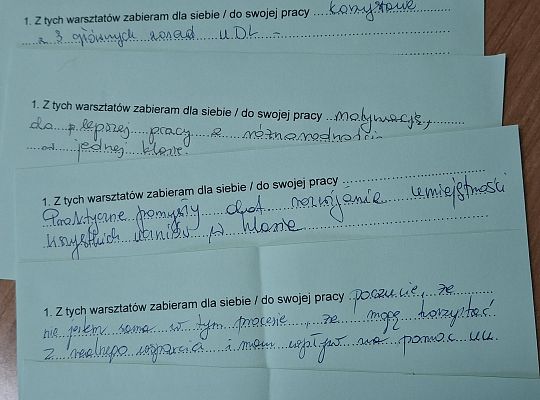 1. Z tych warsztatów zabieram dla siebie / do swojej pracy ... korzystanie
z 3 głównych zasad UDL -
1. Z tych warsztatów zabieram dla siebie / do swojej pracy ... motywację,
do lepszej pracy z różnorodnością
w jednej klasie.
1. Z tych warsztatów zabieram dla siebie / do swojej pracy
Praktyczne pomysły dot rozwijania umiejętności
wszystkich uczniów w klasie
1. Z tych warsztatów zabieram dla siebie / do swojej pracy poczucie, że
nie jestem sama w tym procesie, że mogę korzystać
z realnego wsparcia i mam wpływ na pomoc uczn.